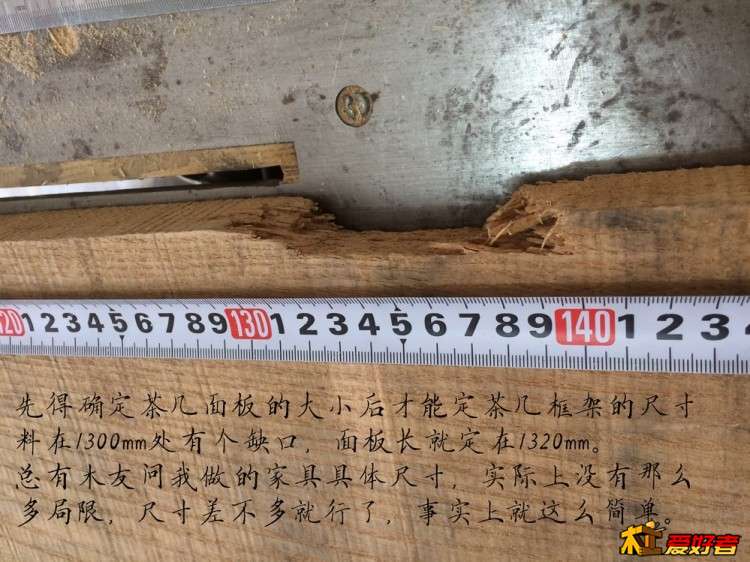 120 1 2 3 4 5 6 7 8 9 130 1 2 3 4 5 6 7 8 9 140 1 2 3 4
先得确定茶几面板的大小后才能定茶几框架的尺寸
料在1300mm处有个缺口，面板长就定在1320mm。
总有木友问我做的家具具体尺寸，实际上没有那么
多局限，尺寸差不多就行了，事实上就这么简单。
木工爱好者